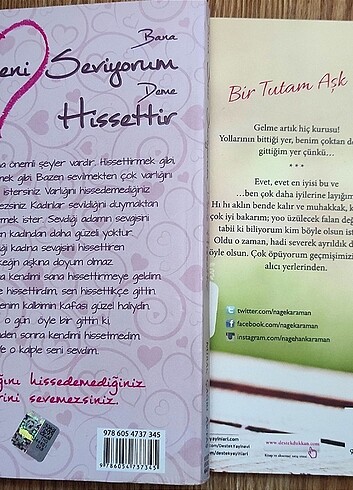 Bana
eni Seviyorum
Deme
Hissettir
a önemli şeyler vardır. Hissettirmek gibi,
mek gibi. Bazen sevilmekten çok varlığını
istersiniz. Varlığını hissedemediğiniz
ezsiniz. Kadınlar sevildiğini duymaktan
rmek ister. Sevdiği adamın sevgisini
en kadından daha güzeli yoktur.
ği kadına sevgisini hissettiren
keğin aşkına doyum olmaz.
a kendimi sana hissettirmeye geldim.
hissettirdim, sen hissettikçe gittin.
enim kalbimin kafası güzel haliydin.
o gün öyle bir gittin ki,
nden sonra kendimi hissetmedim.
e o kalple seni sevdim.
ğını hissedemediğiniz
rini sevemezsiniz.
978 605 4737 345
9 786054 737345
Bir Tutam Aşk
Gelme artık hiç kurusu!
Yollarının bittiği yer, benim çoktan
gittiğim yer çünkü…
***
Evet, evet en iyisi bu ve
…ben çok daha iyilerine layığım
Hı hı aklın bende kalır ve muhakkak, k
çok iyi bakarım; yoo üzülecek falan değ
tabii ki biliyorum kim böyle olsun ist
Oldu o zaman, hadi severek ayrıldık d
öyle olsun. Çok öpüyorum geçmişimizi
alıcı yerlerinden.
twitter.com/nagekaraman
facebook.com/nagekaraman
instagram.com/nagehankaraman
yayinlari.com
com/DestekYayinevi
destekyayinlari
www.destekdukkan.com